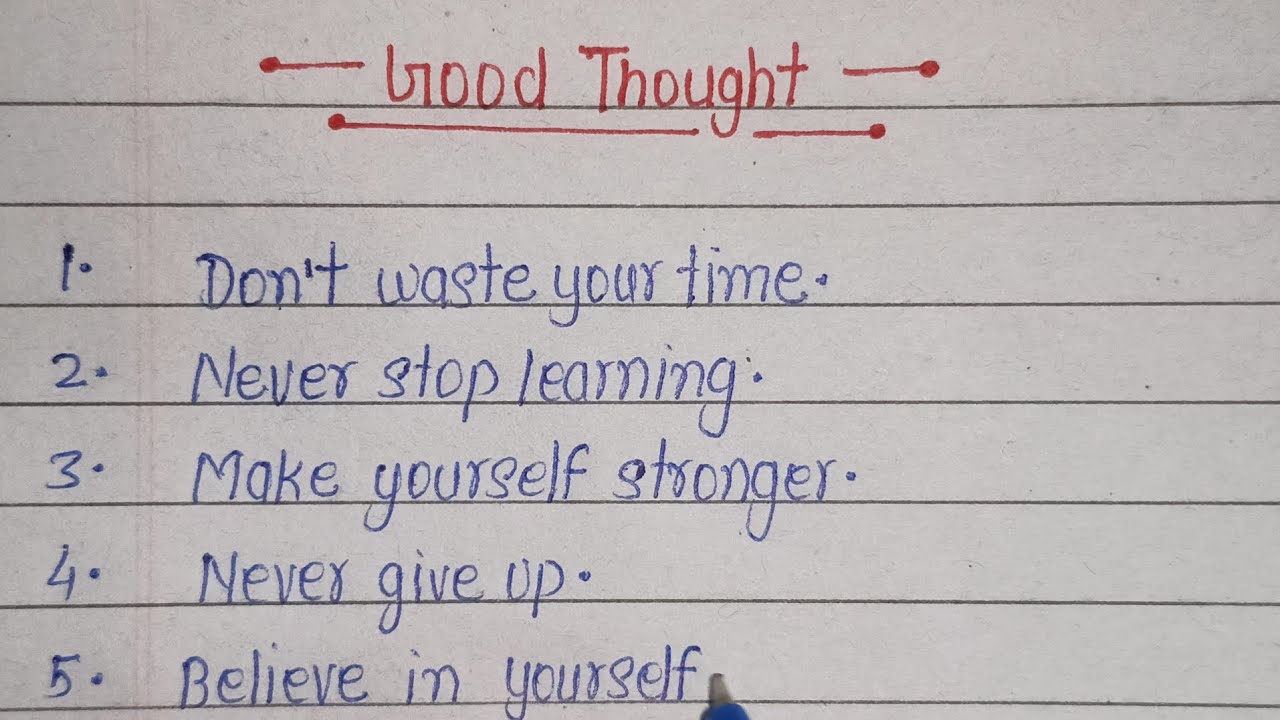 Good Thought
1. Don't waste your time.
2. Never stop learning.
3. Make yourself stronger.
4. Never give up.
5. Believe in yourself